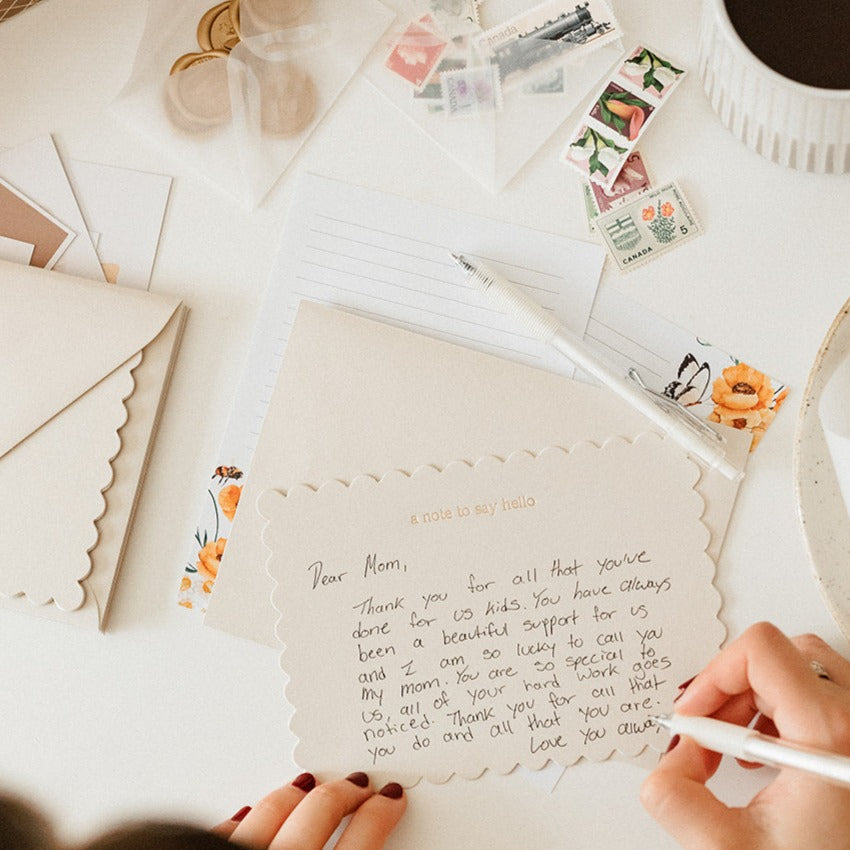 Canada
CANADA
CANADA
5
a note to say hello
Dear Mom,
Thank you for all that you've
done for us kids. You have always
been a beautiful support for us
and I am so lucky to call you
my mom. You are so special to
us, all of your hard work goes
noticed. Thank you for all that
you do and all that you are.
Love you alway